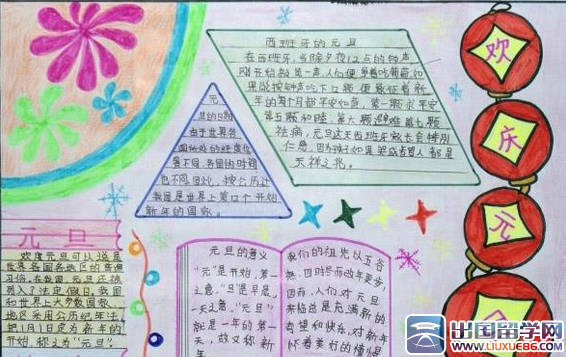 西班牙的元旦
在西班牙,当除夕夜12点的钟声
刚开始敲第一声,人们便争着吃葡萄,如
果能按钟声吃下12颗,便象征着新
年的每个月都平安如意,第一颗求平安
第五颗和睦,第六颗避难,第七颗
祛病,元旦这天西班牙家长会特别
仁慈,因为孩子如果哭或者骂人都是
天祥之兆。
元
旦的日期
由于世界各
国所处的经度位
置不同,各国的时间
也不同,因此,
我国是世界上第12个开始
新年的国家。
元旦
欢度元旦可以说是
世界各国各地区的普遍
习俗,在我国,元旦还被
列入了法定假日,我国
和世界上大多数国家、
地区采用公历纪年法,
把1月1日定为新年的
开始,称之为“元旦”。
元旦的意义
“元”是开始,第一
之意,“旦”是早晨,
一天之意,“元旦”
就是一年的第一
天,故又称新
年。
我们的祖先以五谷
而改年更岁,
因而,人们对元旦
来临总是充满新的
希望和快乐,对新年
怀着美好的憧憬
欢
庆
元
旦
出国留学网
www.liuxue86.com